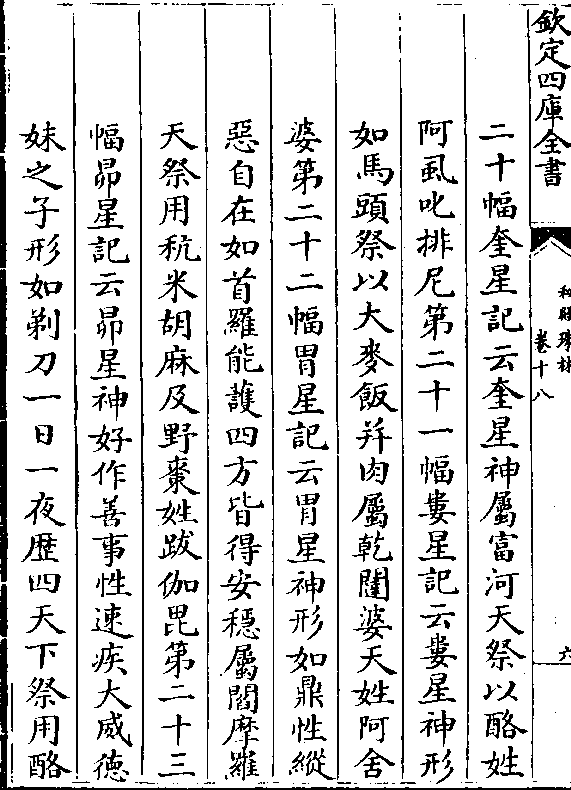 欽定四庫全書
秘殿珠林
卷十八
六
二十幅奎星記云奎星神屬富河天祭以酪姓
阿虱叱排尼第二十一幅婁星記云婁星神形
如馬頭祭以大麥飯并肉屬乾闥婆天姓阿舍
婆第二十二幅胃星記云胃星神形如鼎性縱
惡自在如首羅能護四方皆得安穩屬閻摩羅
天祭用秔米胡麻及野棗姓跋伽毘第二十三
幅昴星記云昴星神好作善事性速疾大威徳
妹之子形如剃刀一日一夜歴四天下祭用酪